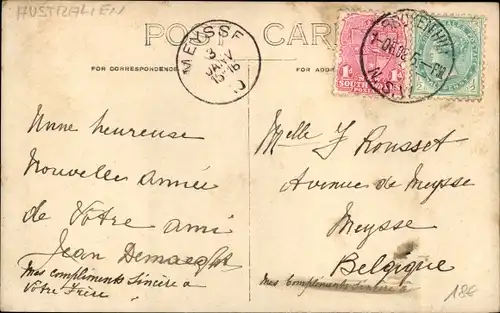 AUSTRALIEN
POST CARD
FOR CORRESPONDENCE
FOR ADDRESS
MEYSSE
3
JANV
15-16
SOUTH
N.S.W
Unne heureuse
Nouvelle année
de Votre ami
Jean Demaeght
Mes compliments Sincère a
Votre Frère
Melle J Rousset
Avenue de Meysse
Meysse
Belgique
Mes Compliments Sincère a
18€